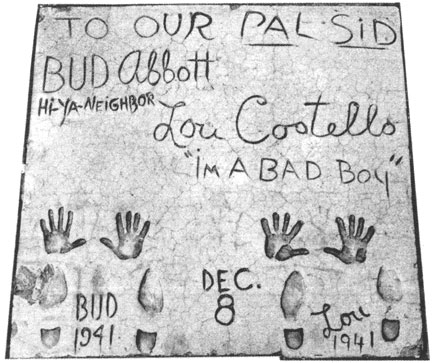 TO OUR PAL SID
BUD Abbott
HI-YA-NEIGHBOR
Lou Costello
"I'M A BAD BOY"
DEC.
8
BUD
1941
Lou
1941